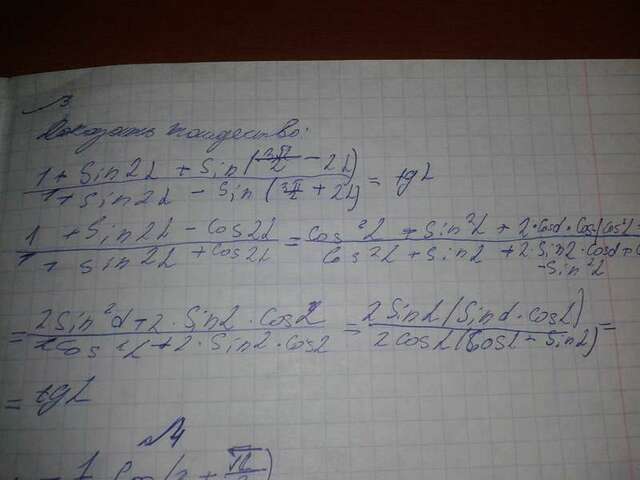 №3
Доказать тождество:
(1 + Sin2α + Sin(3π/2 - 2α)) / (1 + Sin2α - Sin(3π/2 + 2α)) = tgα
(1 + Sin2α - Cos2α) / (1 + Sin2α + Cos2α) = (Cos²α + Sin²α + 2·Cosα·Cosα(Cos²α - / (Cos²α + Sin²α + 2·Sinα·Cosα + C
- Sin²α
= (2Sin²α + 2·Sinα·Cosα) / (2Cos²α + 2·Sinα·Cosα) = (2Sinα(Sinα·Cosα)) / (2Cosα(Cosα + Sinα)) =
= tgα
№4